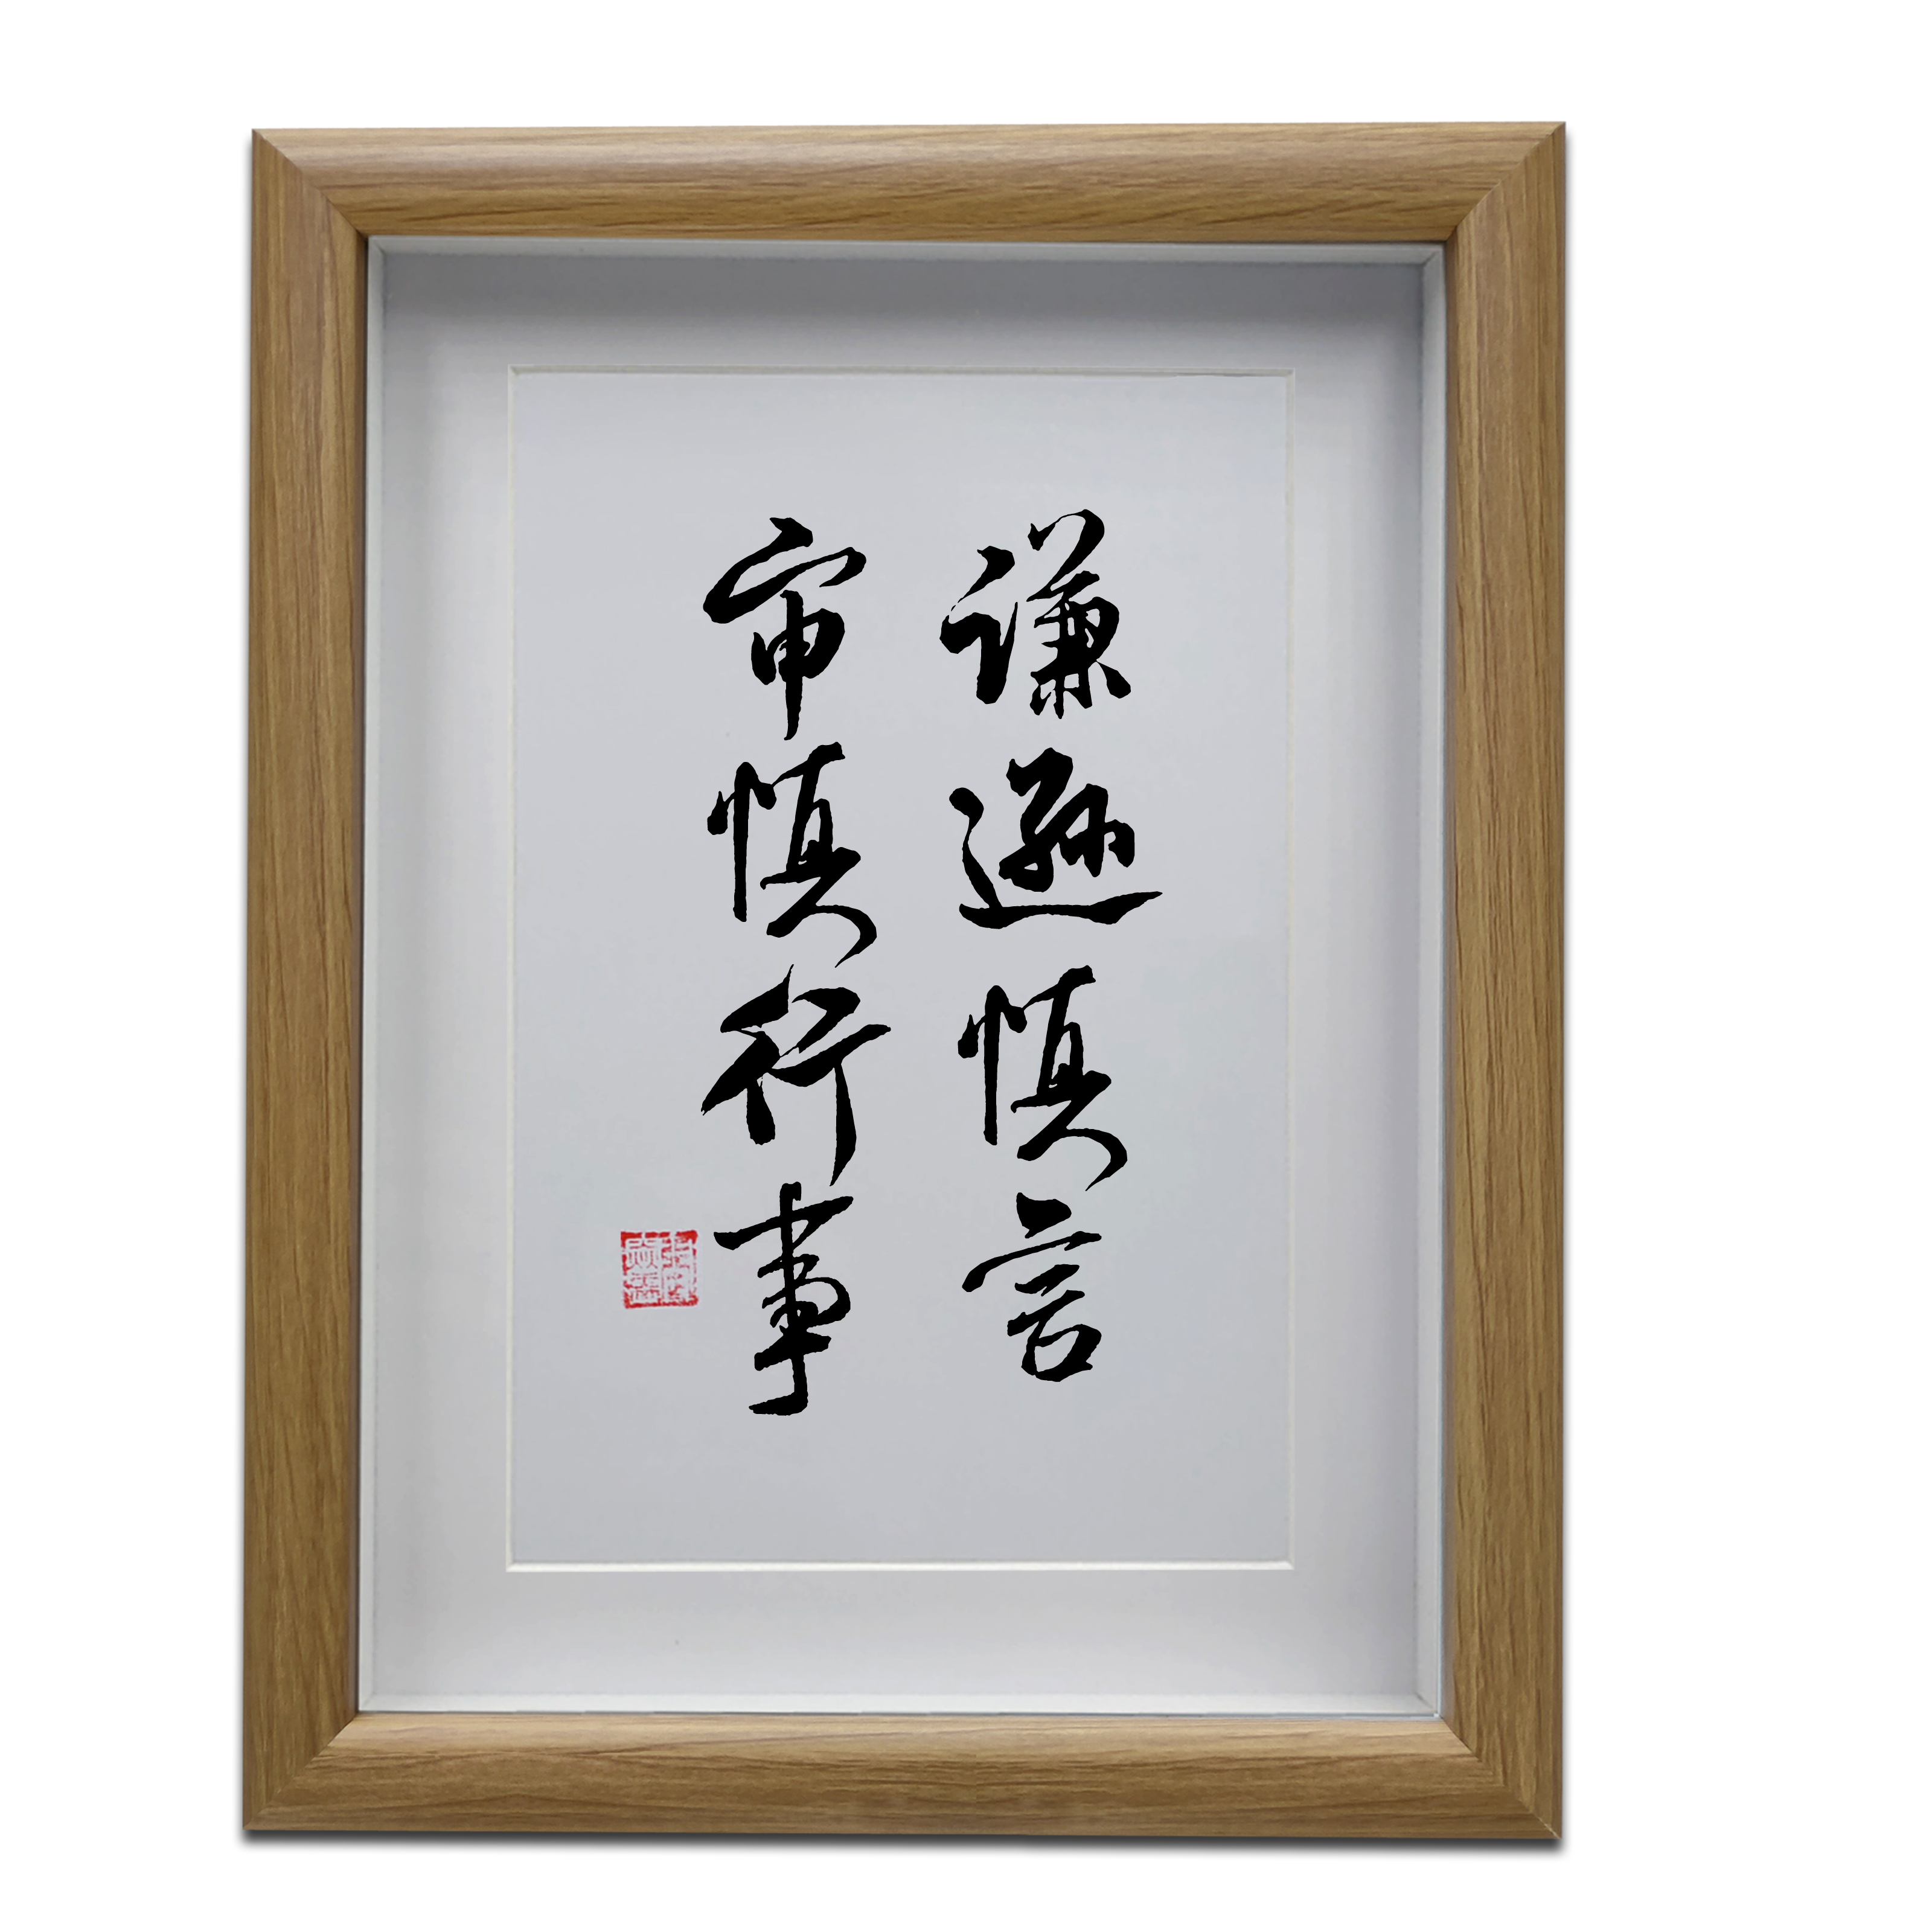 谦逊慎言
审慎行事